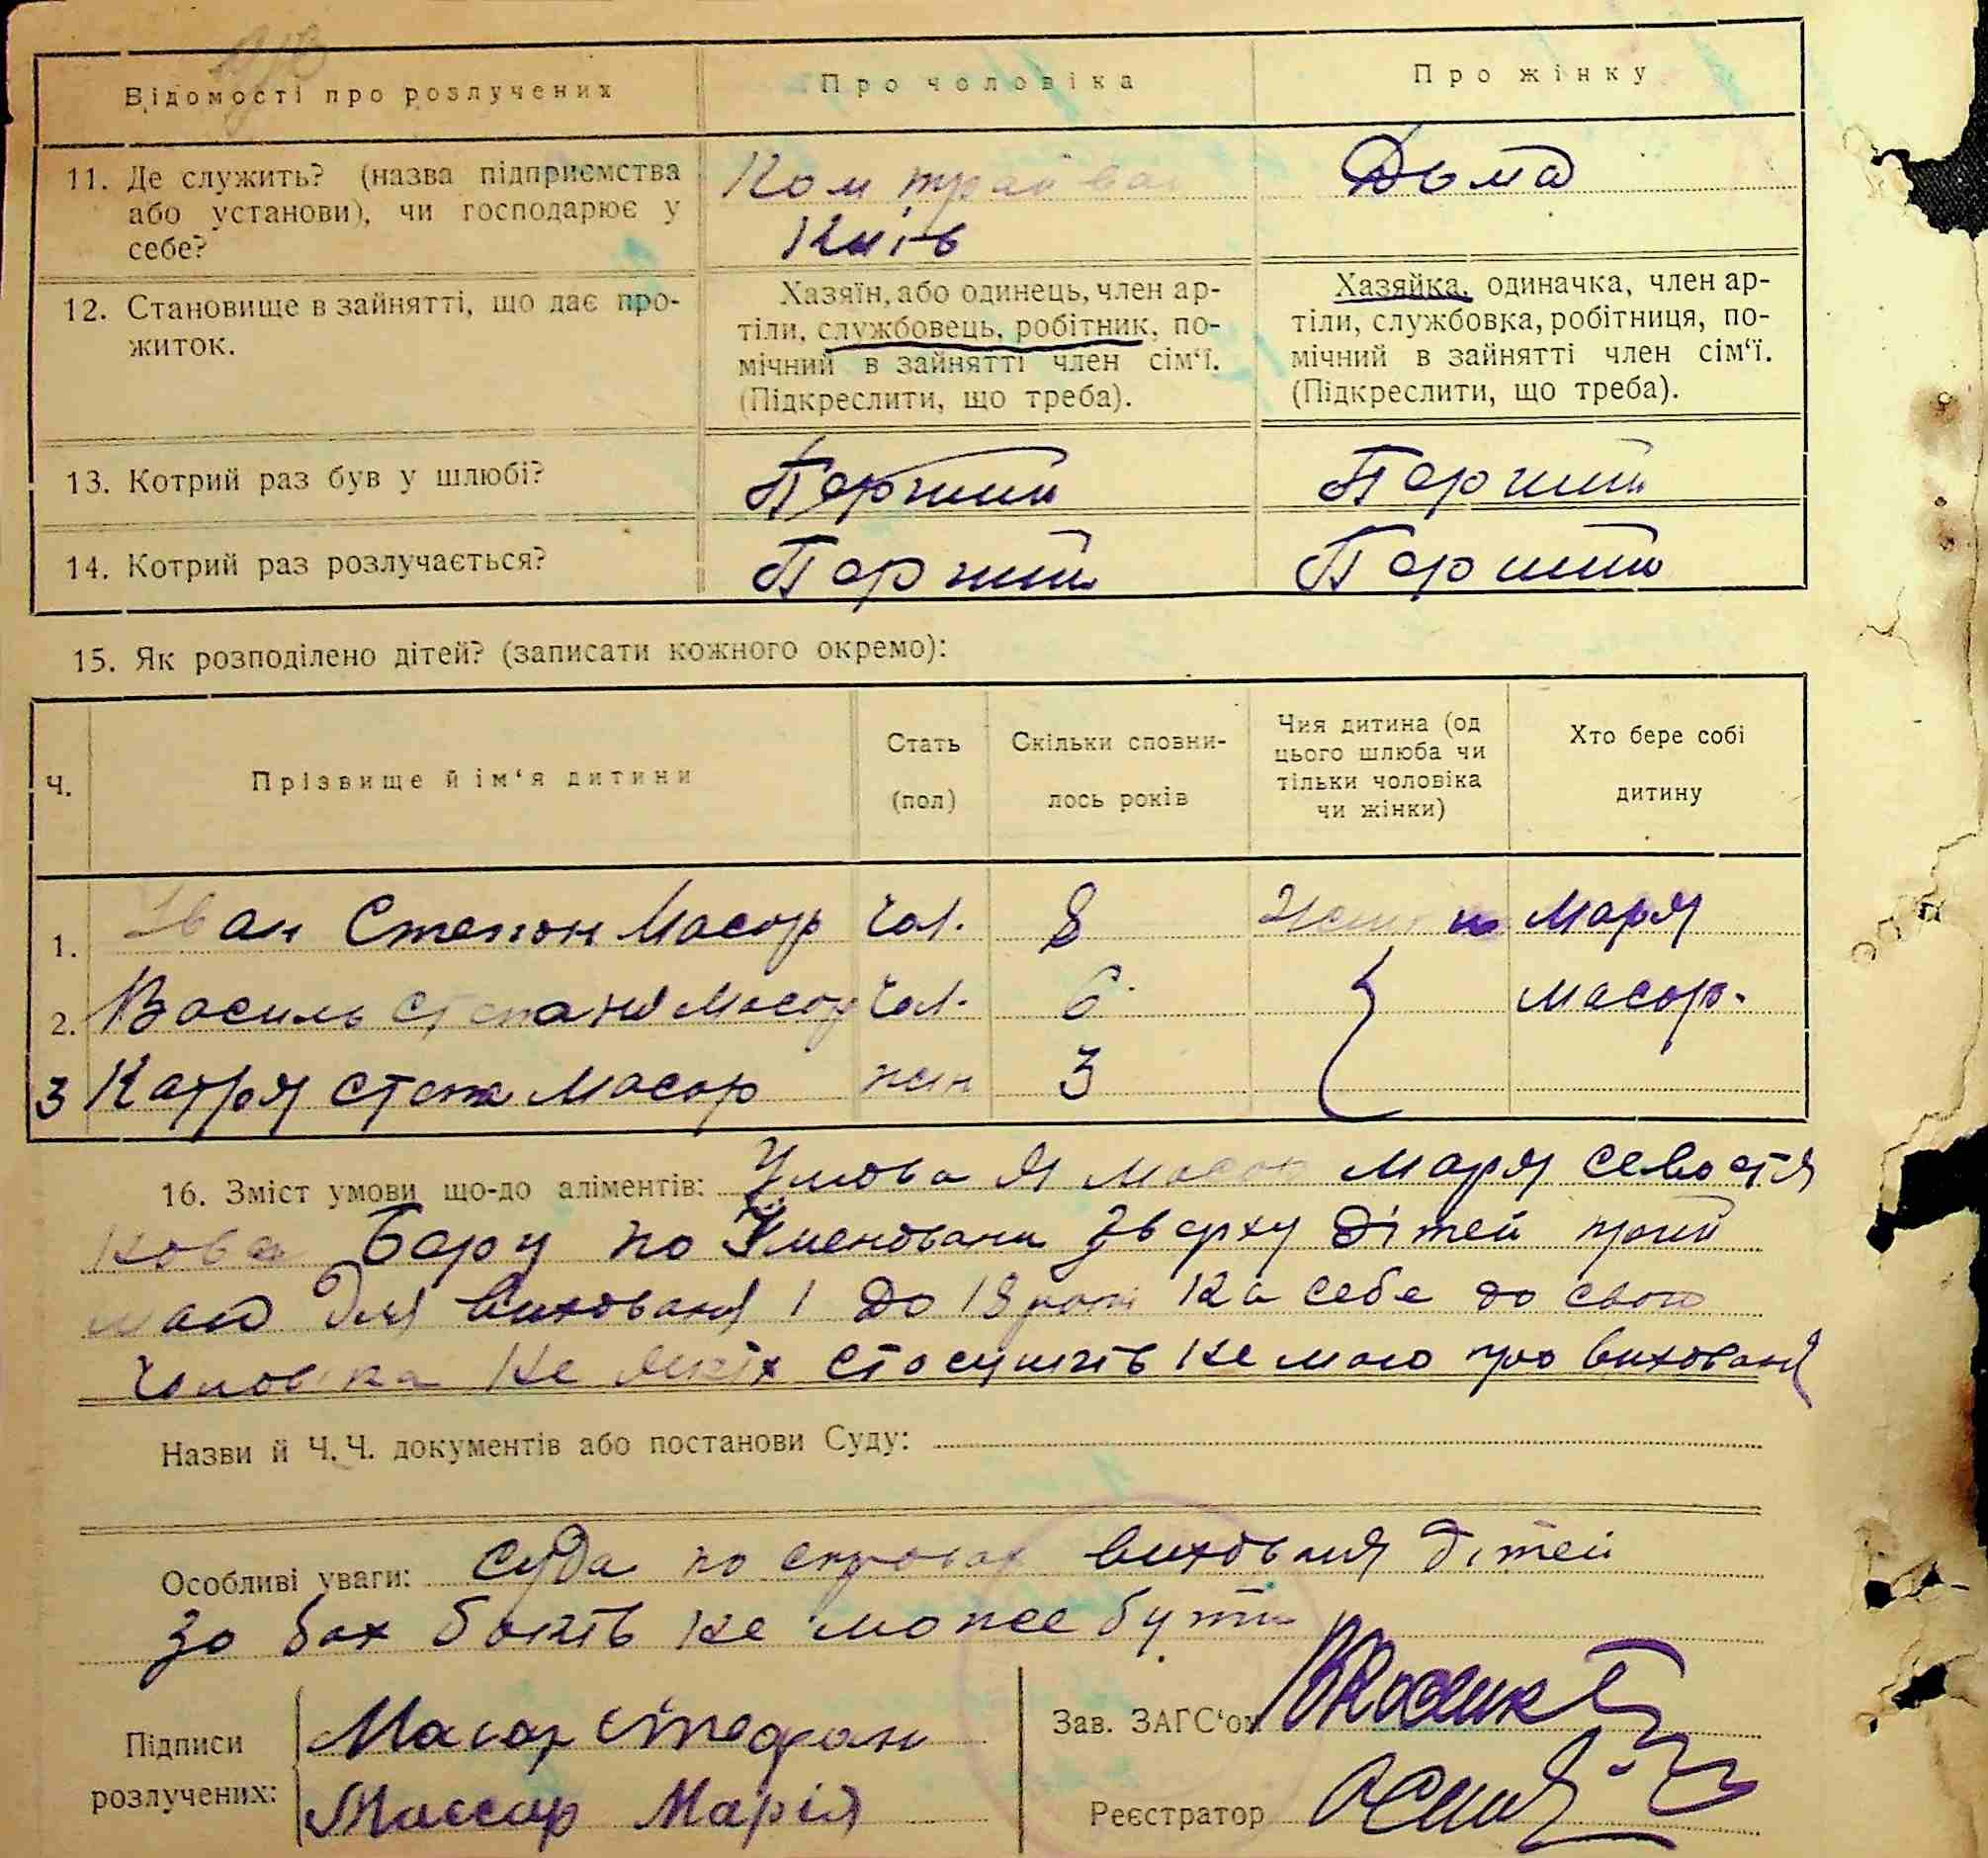 Відомості про розлучених
Про чоловіка
Про жінку
11. Де служить? (назва підприємства
або установи), чи господарює у
себе?
Ком трайвай
Київ
Дома
12. Становище в зайнятті, що дає про-
житок.
Хазяїн, або одинець, член ар-
тіли, службовець, робітник, по-
мічний в зайнятті член сім‘ї.
(Підкреслити, що треба).
Хазяйка, одиначка, член ар-
тіли, службовка, робітниця, по-
мічний в зайнятті член сім‘ї.
(Підкреслити, що треба).
13. Котрий раз був у шлюбі?
Перший
Перший
14. Котрий раз розлучається?
Перший
Перший
15. Як розподілено дітей? (записати кожного окремо):
Ч.
Прізвище й ім‘я дитини
Стать
(пол)
Скільки сповни-
лось років
Чия дитина (од
цього шлюба чи
тільки чоловіка
чи жінки)
Хто бере собі
дитину
1. Іван Степан Масар чол. 8 Маря
2. Василь Степани Масар чол. 6 Масар.
3 Катря Степа Масар жін 3
16. Зміст умови що-до аліментів: Умова Я Масар Маря Севастя
нова Беру по Іменовани Зверху дітей прий
маю для виховання до 18 рот на себе до свого
чоловіка не яких стосунків не маю про виховання
Назви й Ч.Ч. документів або постанови Суду:
Особливі уваги: Суда по справах виховання дітей
з обох боків не може бути
Підписи
розлучених:
Масар Стефан
Массар Марія
Зав. ЗАГС‘ом
Реєстратор